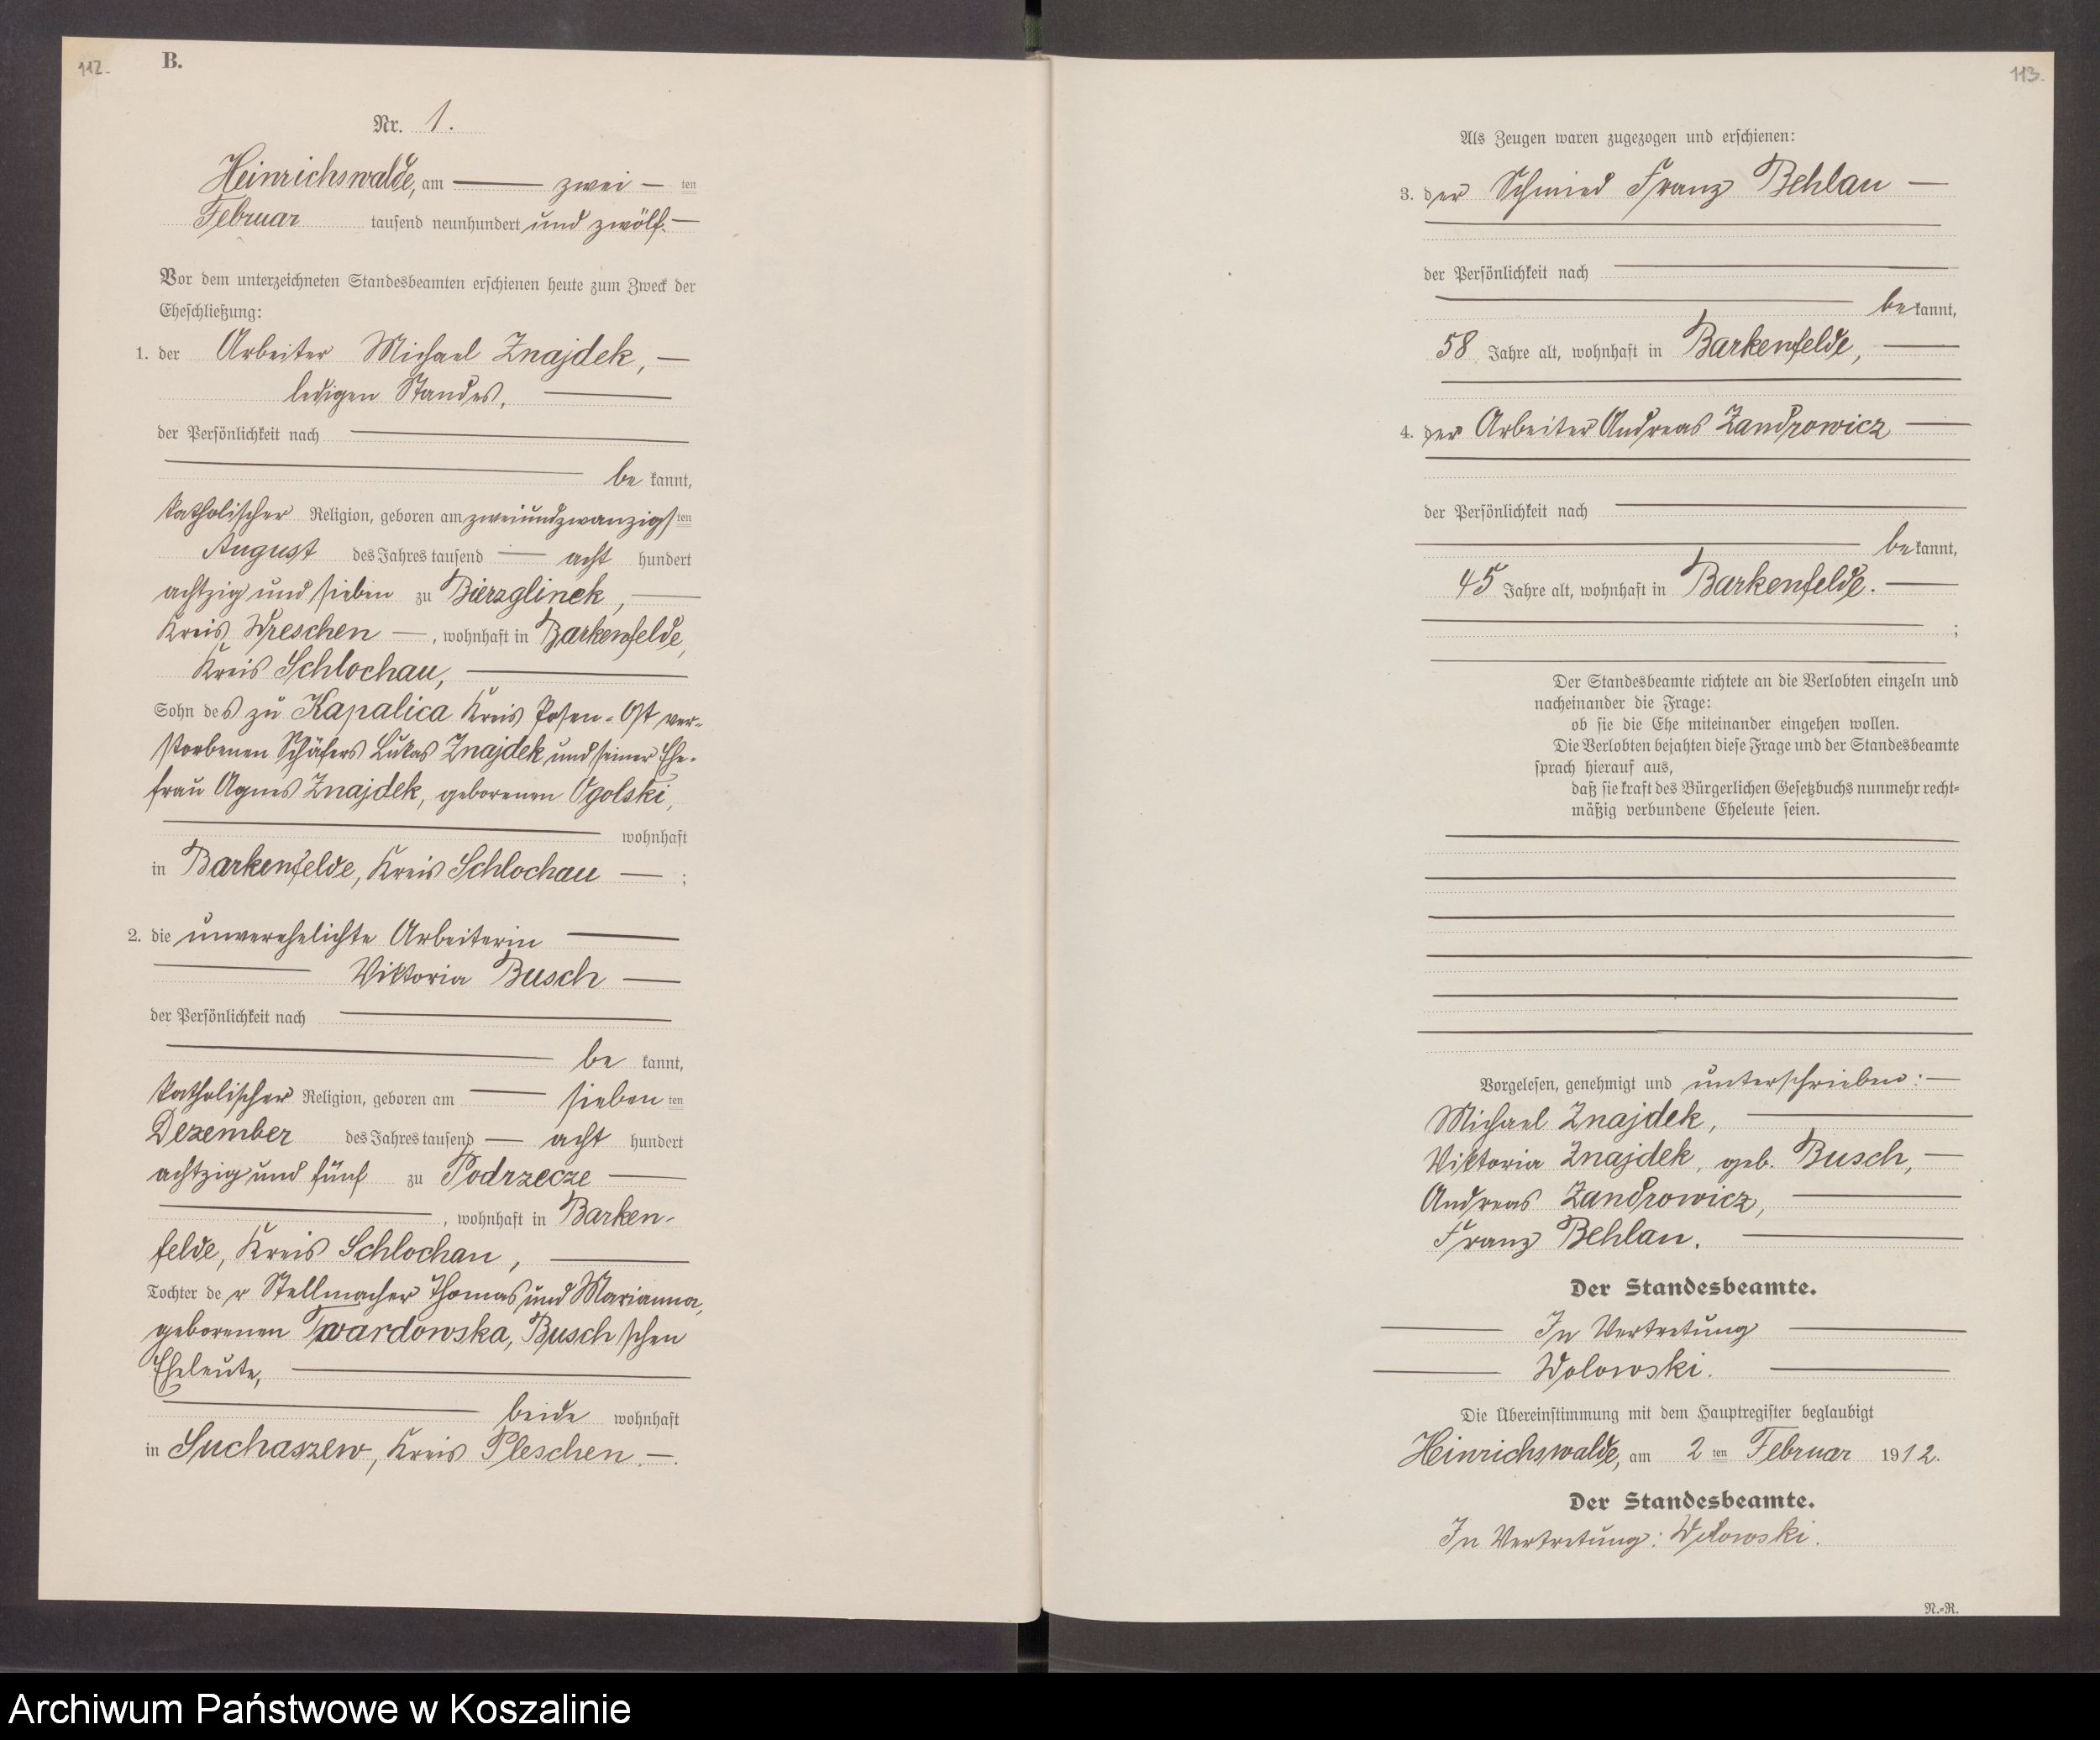 112.
B.
Nr. 1.
Heinrichswalde, am — zwei — ten
Februar tausend neunhundert und zwölf. —
Vor dem unterzeichneten Standesbeamten erschienen heute zum Zweck der
Eheschließung:
1. der Arbeiter Michael Znajdek, —
ledigen Standes, —
der Persönlichkeit nach —
— be kannt,
katholischer Religion, geboren am zweiundzwanzigsten
August des Jahres tausend — acht hundert
achtzig und sieben zu Bierzglinek, —
Kreis Wreschen —, wohnhaft in Barkenfelde,
Kreis Schlochau, —
Sohn des zu Kapalica Kreis Posen-Ost ver-
storbenen Schäfers Lukas Znajdek und seiner Ehe-
frau Agnes Znajdek, geborenen Ogolski,
— wohnhaft
in Barkenfelde, Kreis Schlochau — ;
2. die unverehelichte Arbeiterin —
— Viktoria Busch —
der Persönlichkeit nach —
— be kannt,
katholischer Religion, geboren am — sieben ten
Dezember des Jahres tausend — acht hundert
achtzig und fünf zu Podrzecze —
—, wohnhaft in Barken-
felde, Kreis Schlochau, —
Tochter der Stellmacher Thomas und Marianna,
geborenen Twardowska, Busch'schen
Eheleute, —
— beide wohnhaft
in Suchaszew, Kreis Pleschen. —.
113.
Als Zeugen waren zugezogen und erschienen:
3. der Schmied Franz Behlau —
der Persönlichkeit nach —
— be kannt,
58 Jahre alt, wohnhaft in Barkenfelde, —
4. der Arbeiter Andreas Zandrowicz —
der Persönlichkeit nach —
— be kannt,
45 Jahre alt, wohnhaft in Barkenfelde. —
— ;
Der Standesbeamte richtete an die Verlobten einzeln und
nacheinander die Frage:
ob sie die Ehe miteinander eingehen wollen.
Die Verlobten bejahten diese Frage und der Standesbeamte
sprach hierauf aus,
daß sie kraft des Bürgerlichen Gesetzbuchs nunmehr recht-
mäßig verbundene Eheleute seien.
Vorgelesen, genehmigt und unterschrieben: —
Michael Znajdek, —
Viktoria Znajdek, geb. Busch, —
Andreas Zandrowicz, —
Franz Behlau. —
Der Standesbeamte.
— In Vertretung —
— Wolowski. —
Die Übereinstimmung mit dem Hauptregister beglaubigt
Heinrichswalde, am 2 ten Februar 1912.
Der Standesbeamte.
In Vertretung: Wolowski.
N.-R.
Archiwum Państwowe w Koszalinie